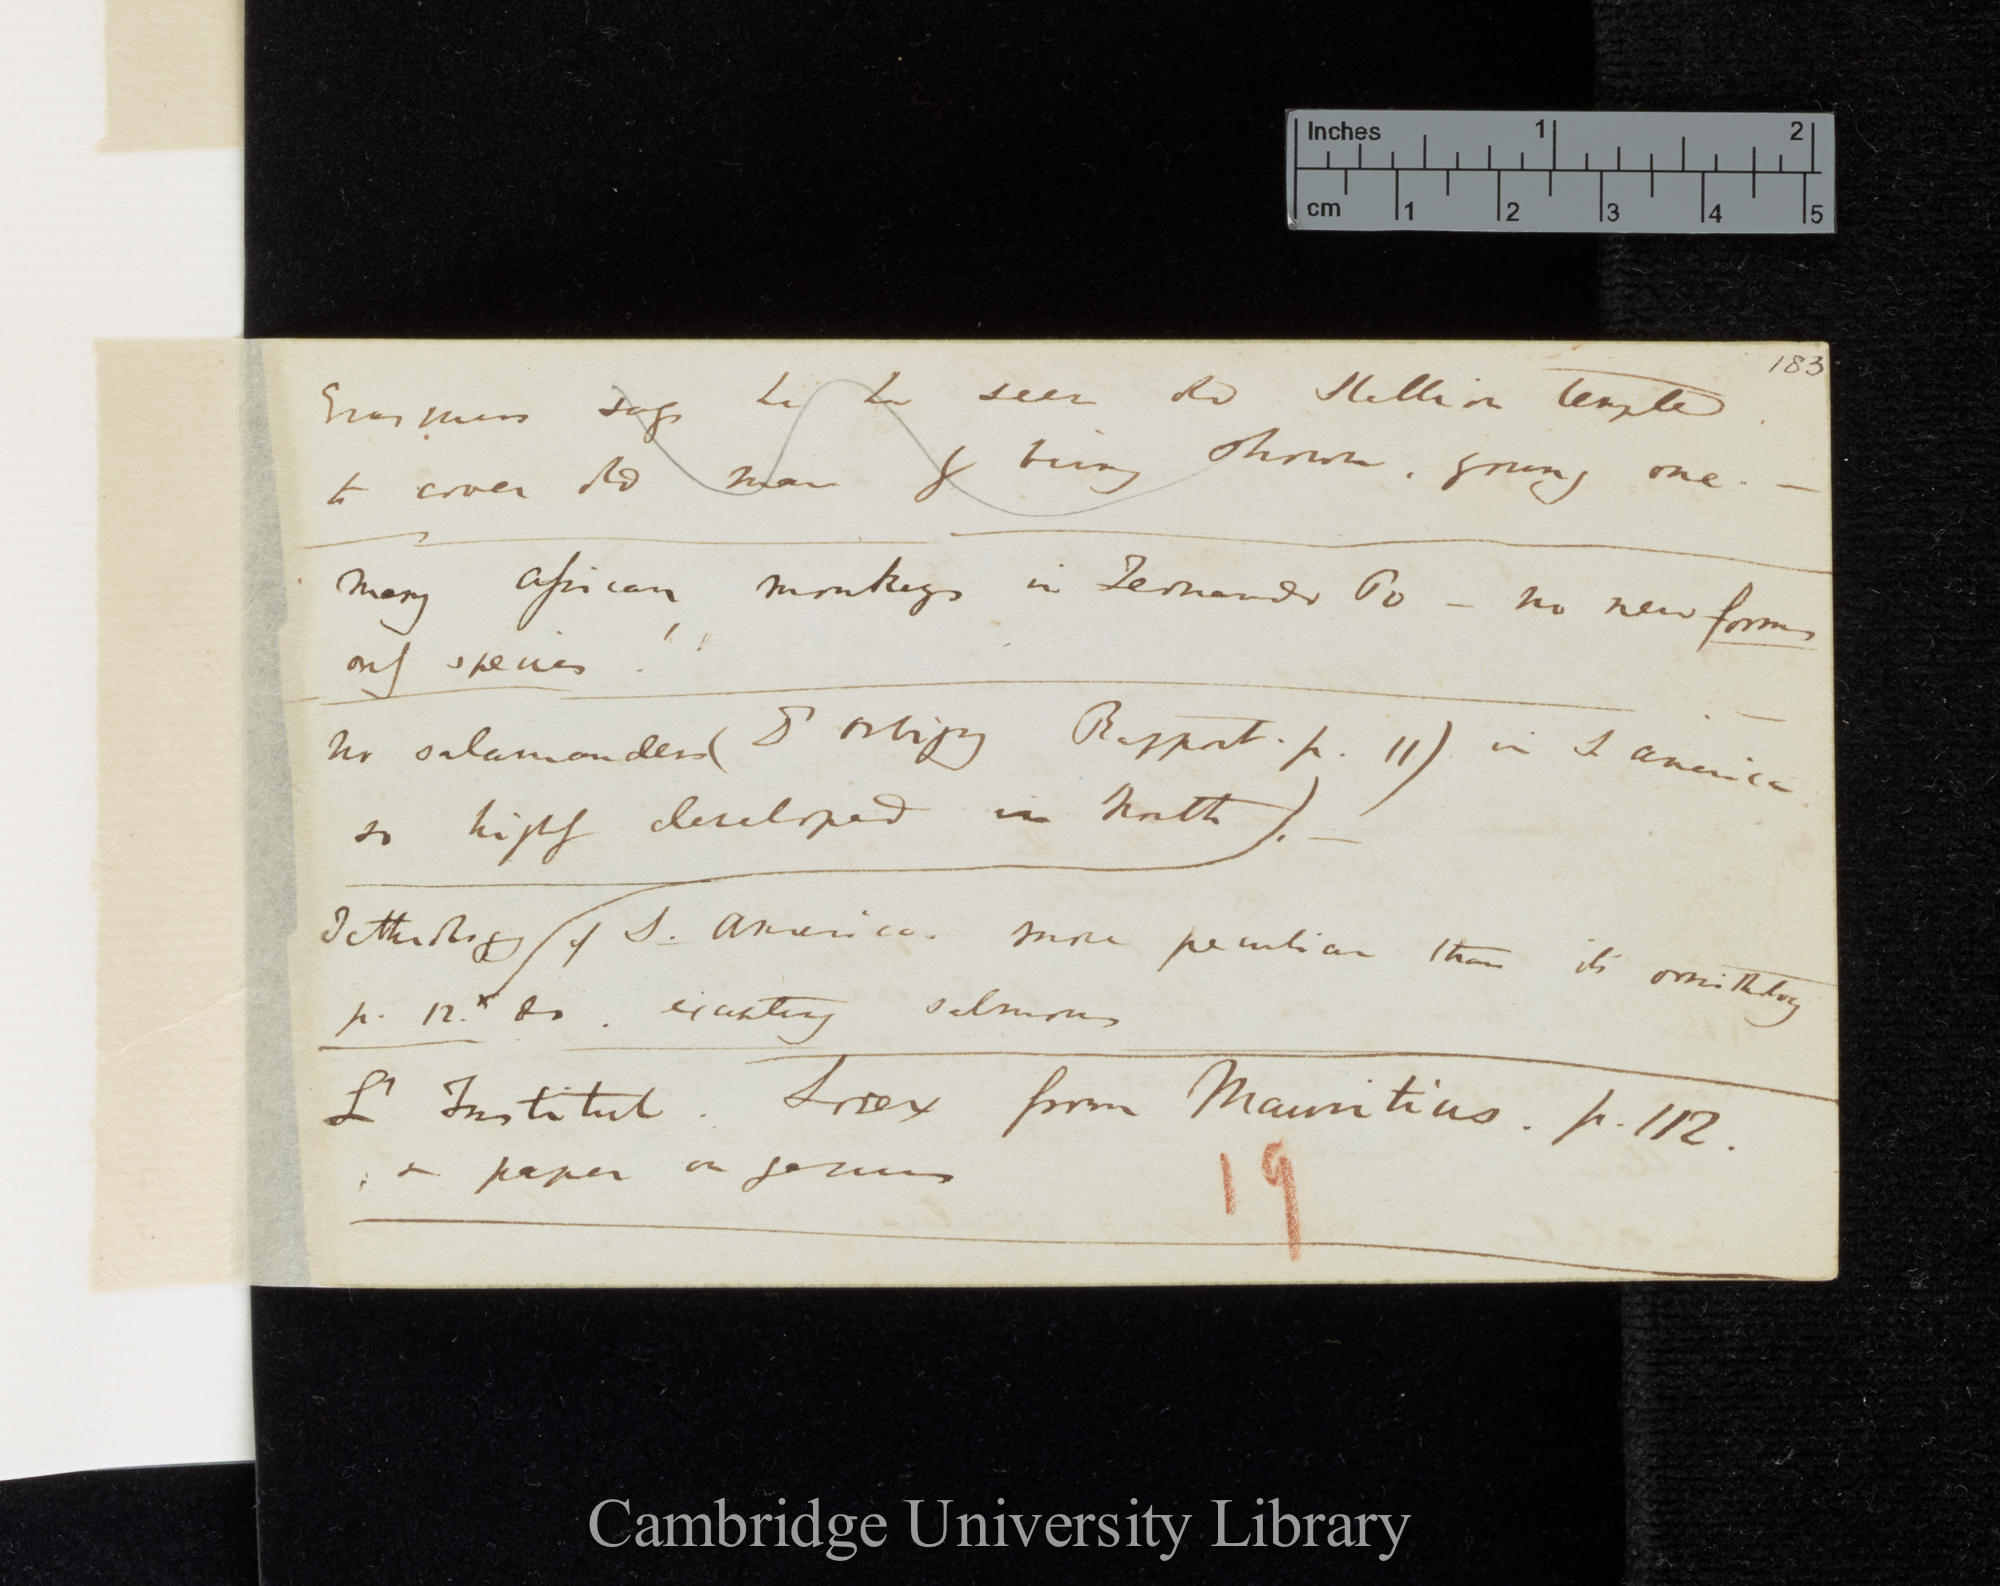 Inches 1 2
cm 1 2 3 4 5
183
Erasmus says he has seen old stallion tempted
to cover old mare by being shown, young one. —
Many African monkeys in Fernando Po — no new forms
only species!!
No salamanders (D'Orbigny Rapport. p. 11) in S America
so highly developed in North). —
Icthiology of S. America. more peculiar than its ornithology
p. 12.x do. excepting salmons
L'Institut. Sorex from Mauritius. p. 112.
& paper on genus
19
Cambridge University Library